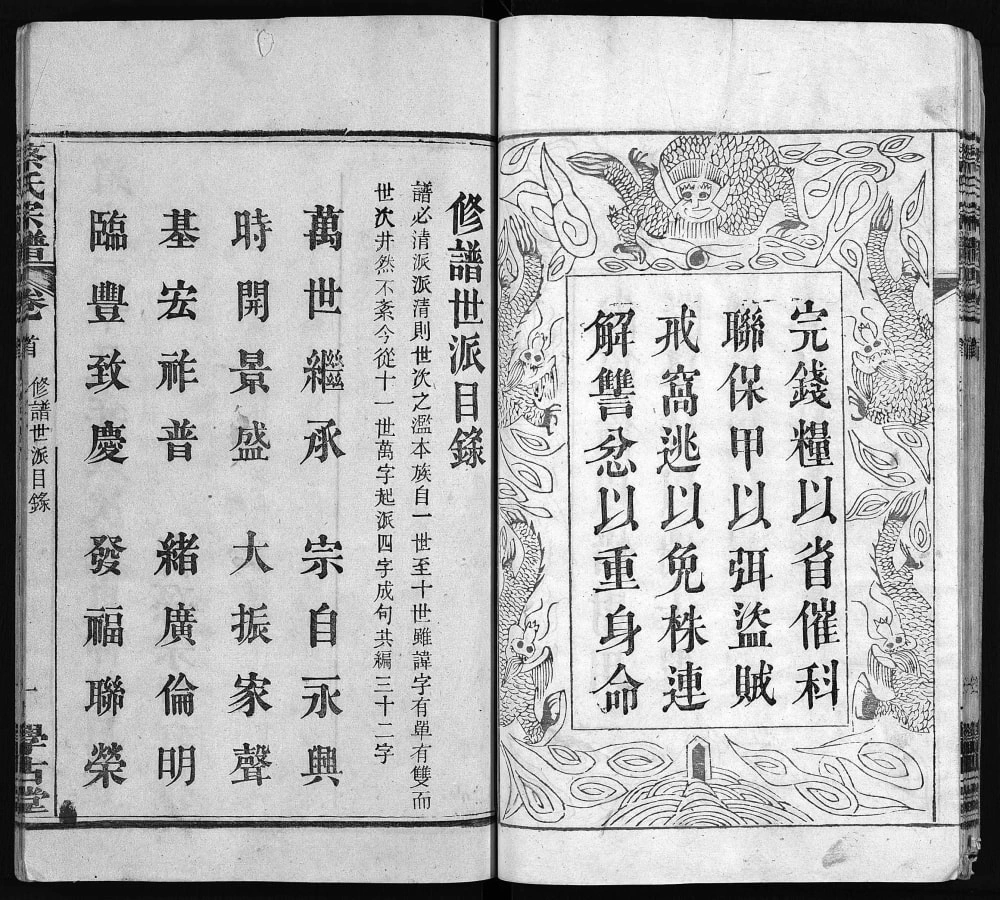 完錢糧以省催科
聯保甲以弭盜賊
戒窩逃以免株連
解讐忿以重身命
修譜世派目錄
譜必清派派清則世次之濫本族自一世至十世雖諱字有單有雙而
世次井然不紊今從十一世萬字起派四字成句共編三十二字
萬世繼承 宗自永興
時開景盛 大振家聲
基宏祚普 緒廣倫明
臨豐致慶 發福聯榮
蔡氏宗譜 卷首 修譜世派目錄 一 學古堂